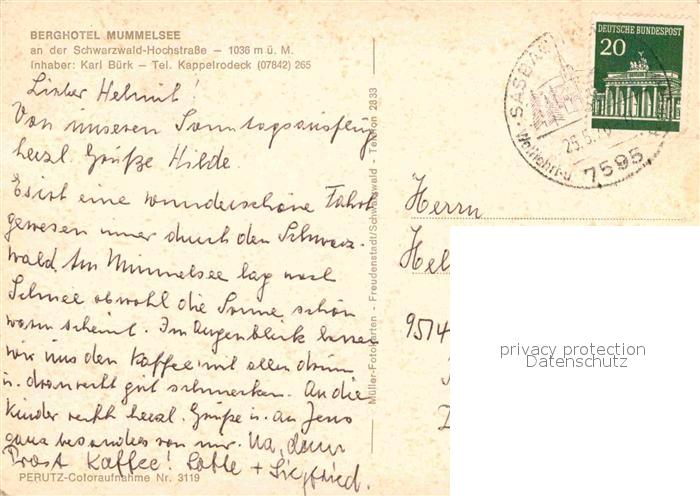 BERGHOTEL MUMMELSEE
an der Schwarzwald-Hochstraße – 1036 m ü. M.
Inhaber: Karl Bürk – Tel. Kappelrodeck (07842) 265
Lieber Helmut!
Von unserem Sonntagsausflug
herzl. Grüße Hilde.
Es ist eine wunderschöne Fahrt
gewesen immer durch den Schwarz-
wald. Am Mummelsee lag noch
Schnee obwohl die Sonne schön
warm scheint. Im Augenblick lassen
wir uns den Kaffee mit allem drum
u. dran recht gut schmecken. An die
Kinder recht herzl. Grüße u. an Jens
ganz besonders von mir. Na, dann
Prost Kaffee! Lotte + Siegfried.
PERUTZ-Coloraufnahme Nr. 3119
Müller-Fotokarten - Freudenstadt/Schwarzwald - Telefon 2833
DEUTSCHE BUNDESPOST
20
SASBA
Wallfahrt-u
7595
Herrn
Hel
9514
privacy protection
Datenschutz